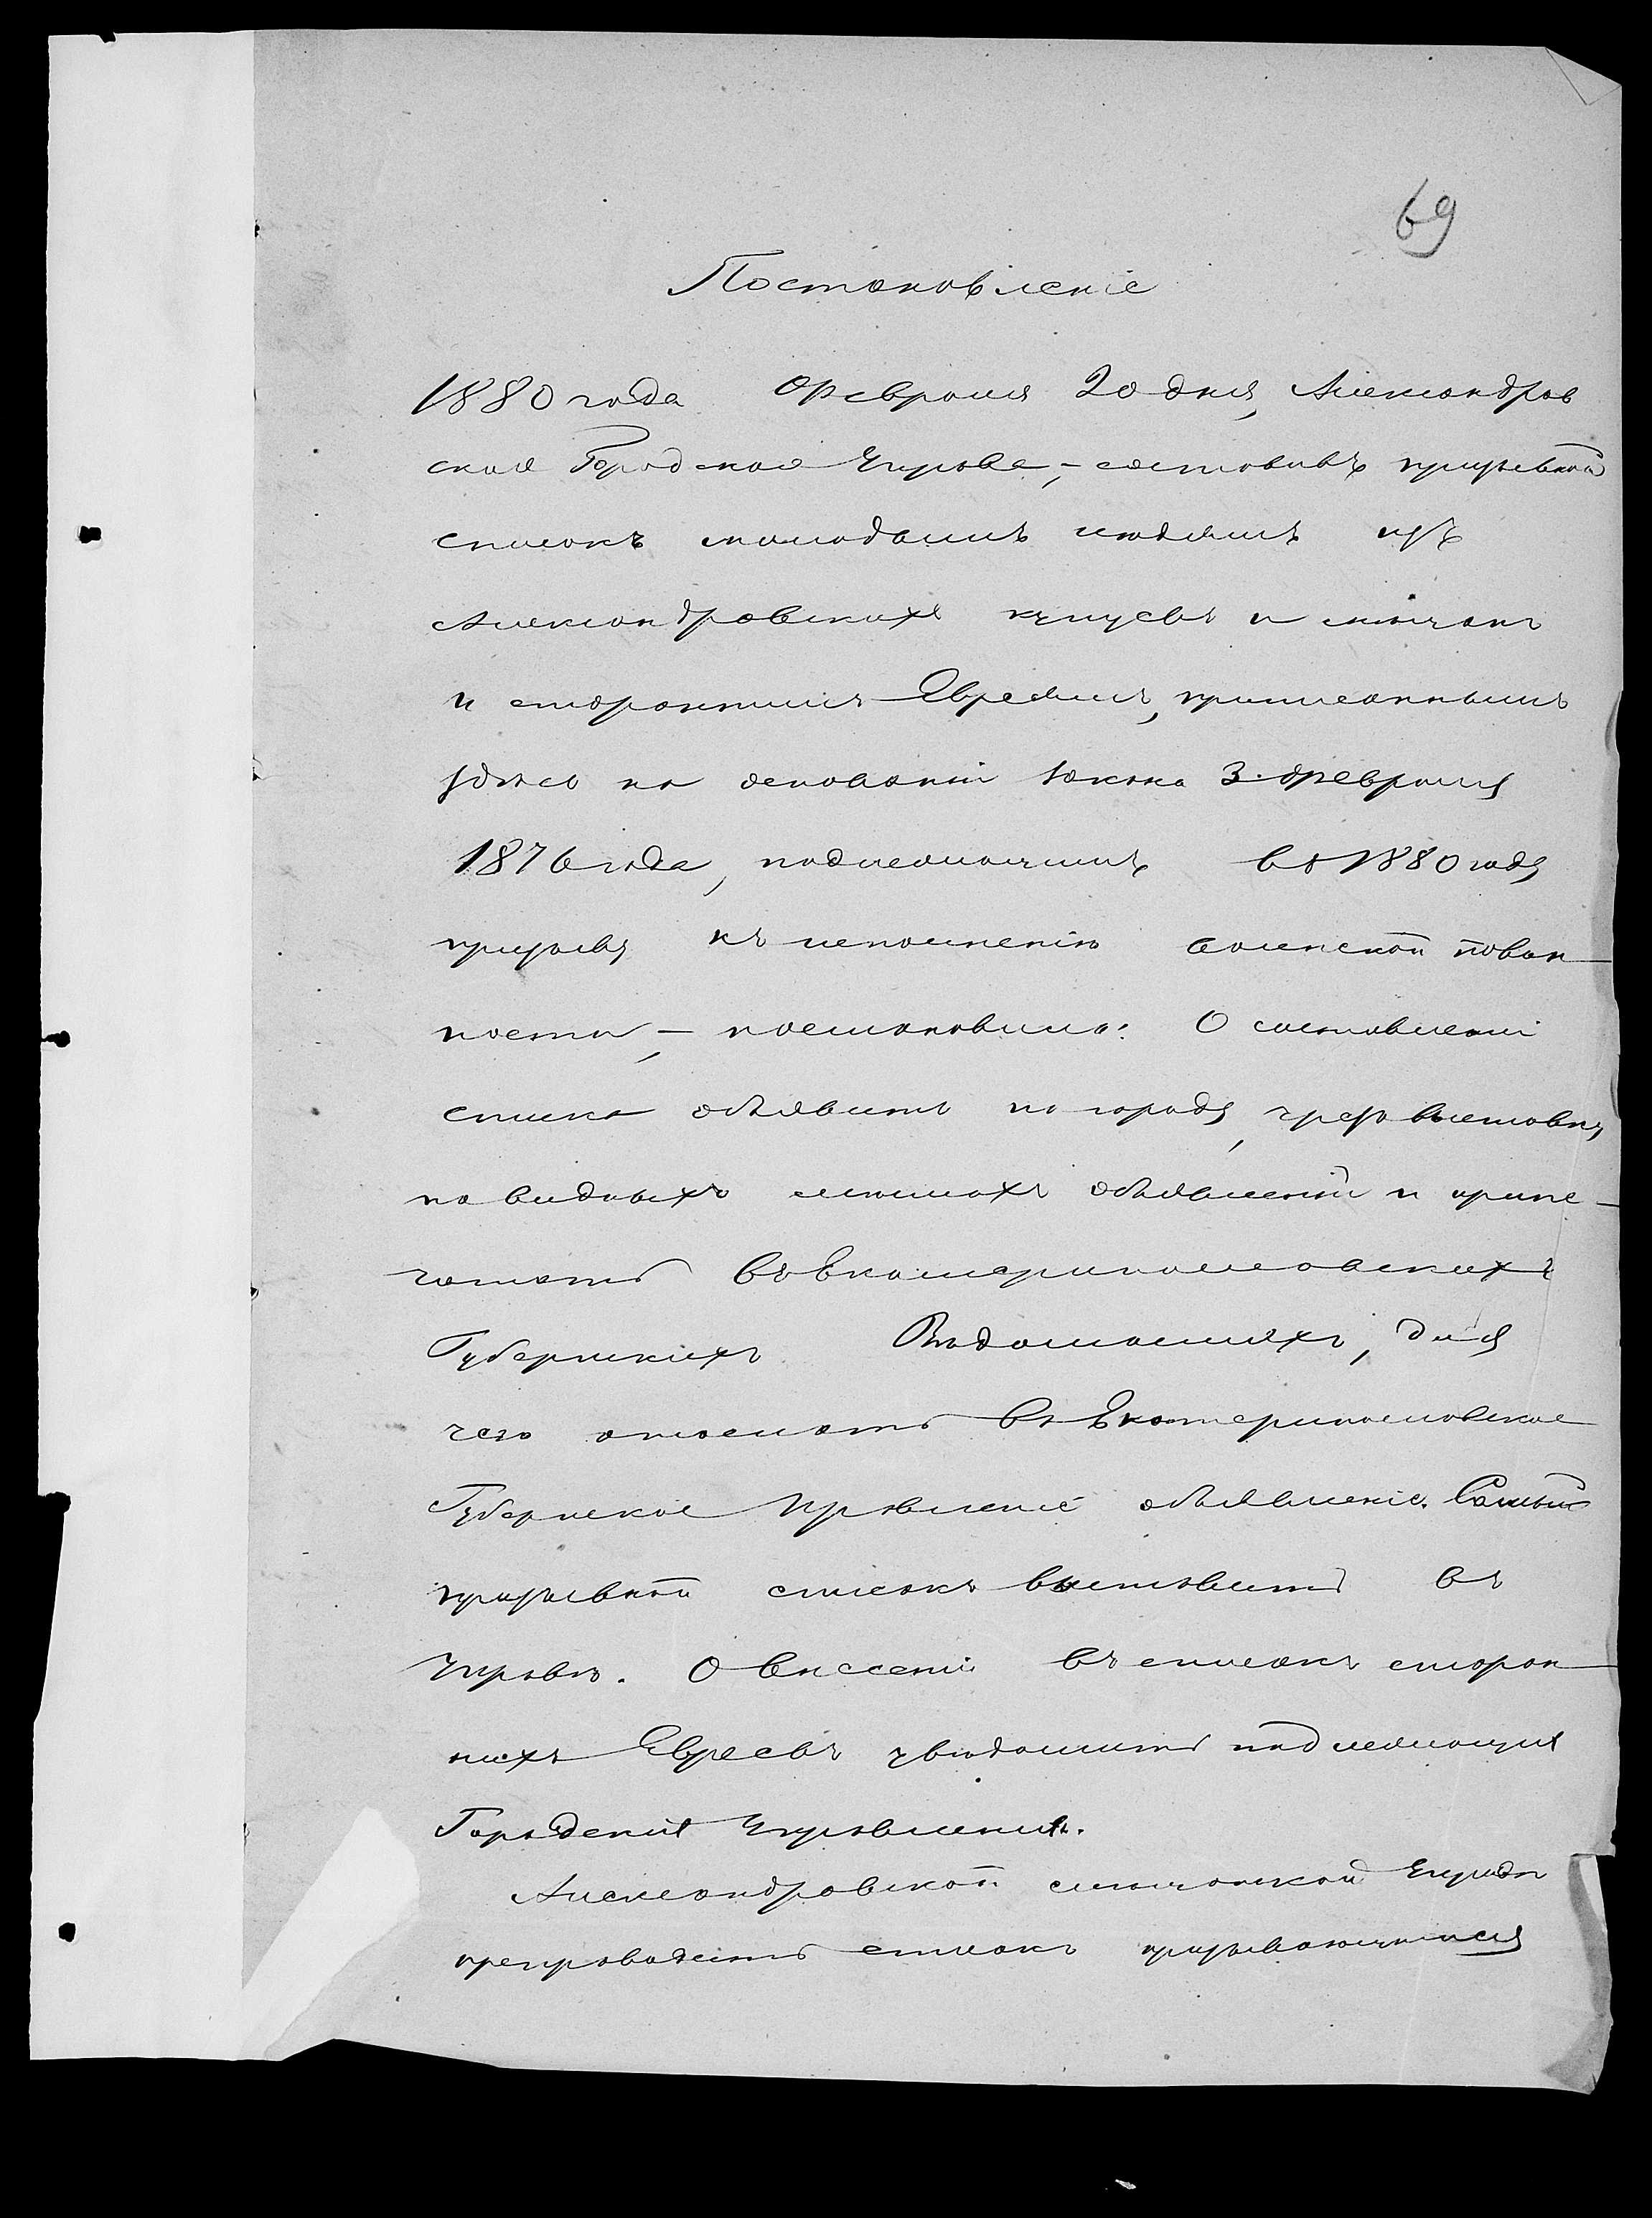 69
Постановленіе
1880 года Февраля 20 дня, Александров
ская Городская Управа,- составивъ призывной
списокъ молодымъ людямъ изъ
Александровскихъ купцевъ и мѣщанъ
и стороннимъ Евреямъ, приписаннымъ
здѣсь на основаніи Указа 3 Февраля
1876 года, подлежащимъ въ 1880 году
призыву къ исполненію воинской повин-
ности,- постановила: О составленіи
списка объявить по городу, чрезъ выставку
на видныхъ мѣстахъ объявленій и припе-
чатать въ Екатеринославскихъ
Губернскихъ Вѣдомостяхъ, для
чего отослать въ Екатеринославское
Губернское Правленіе объявленіе. Самый
призывной списокъ выставить въ
Управѣ. О внесеніи въ списокъ сторон-
нихъ Евреевъ увѣдомить подлежащія
Городскія Управленія.
Александровской мѣщанской Управѣ
препроводить списокъ призывающимся